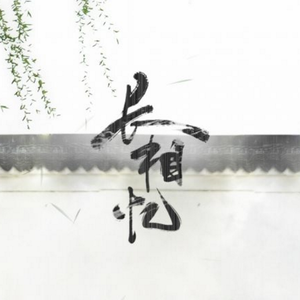 长相忆